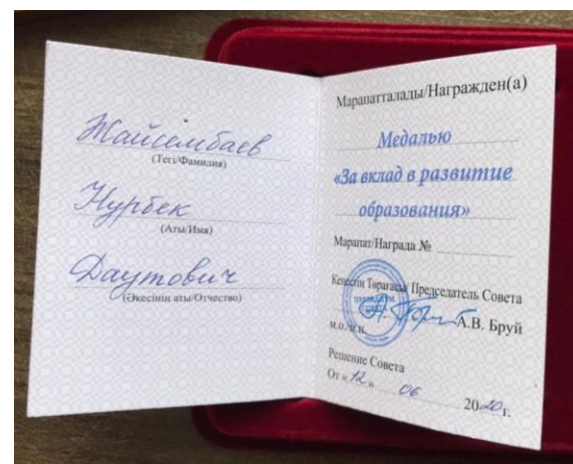 Жайсембаев
(Тегі/Фамилия)
Нурбек
(Аты/Имя)
Даутович
(Әкесінің аты/Отчество)
Марапатталады/Награжден(а)
Медалью
«За вклад в развитие
образования»
Марапат/Награда №
Кеңестің Төрағасы/ Председатель Совета
А.В. Бруй
м.о./м.п.
Решение Совета
От « 12 » 06 2020 г.